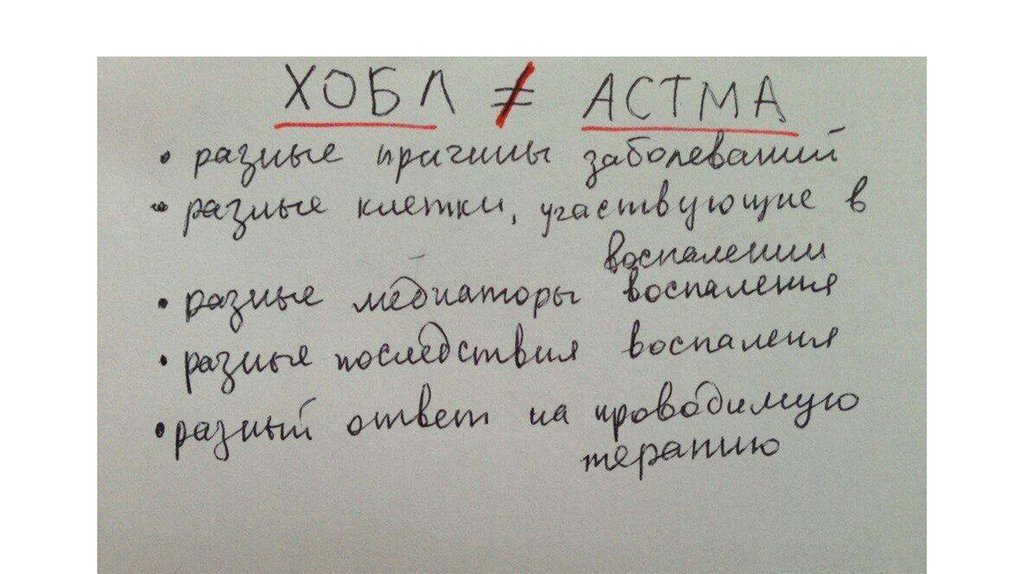 ХОБЛ ≠ АСТМА
• разные причины заболеваний
• разные клетки, участвующие в
воспалении
• разные медиаторы воспаления
• разные последствия воспаленя
• разный ответ на проводимую
терапию